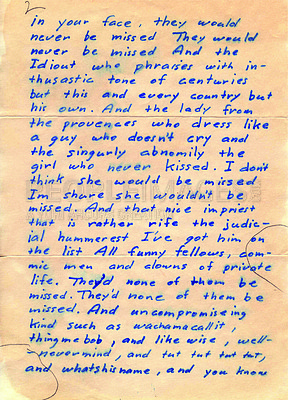 2
in your face, they would
never be missed They would
never be missed And the
Idiout who phraises with in-
thusastic tone of centuries
but this and every country but
his own. And the lady from
the provences who dress like
a guy who doesn't cry and
the singurly abnomily the
girl who never kissed. I don't
think she would be missed
Im shure she wouldn't be
missed. And that nice impriest
that is rather rife the judic-
ial hummerest I've got him on
the list All funny fellows, com-
mic men and clowns of private
life. They'd none of them be
missed. They'd none of them be
missed. And uncompromiseing
kind such as wachamacallit,
thingmebob, and like wise, well-
-nevermind, and tut tut tut tut,
and whatshisname, and you know